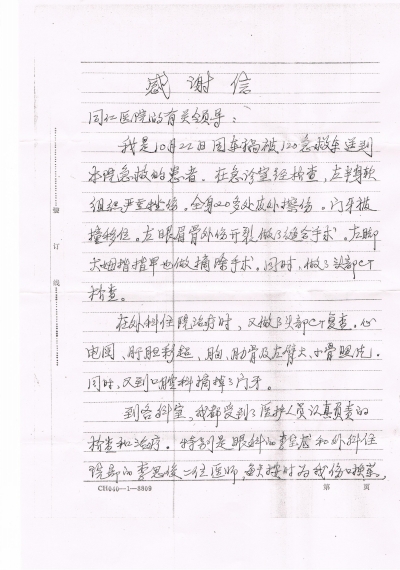 感谢信
同仁医院的有关领导：
我是10月22日因车祸被120急救车送到
本院急救的患者。在急诊室经检查，左半身软
组织严重挫伤。全身20多处皮外擦伤。门牙被
撞移位。左眼眉骨外伤开裂做了缝合手术。左脚
大姆指指甲也做摘除手术。同时，做了头部CT
检查。
在外科住院治疗时，又做了头部CT复查。心
电图、肝胆彩超、胸、肋骨及左臂大、小骨照光。
同时，又到口腔科摘掉了门牙。
到各科室，我都受到了医护人员认真负责的
检查和治疗。特别是眼科的李 和外科住
院部的李思俊二位医师，每天按时为我伤口换药，
装订线
CH040—1—8809
第 页